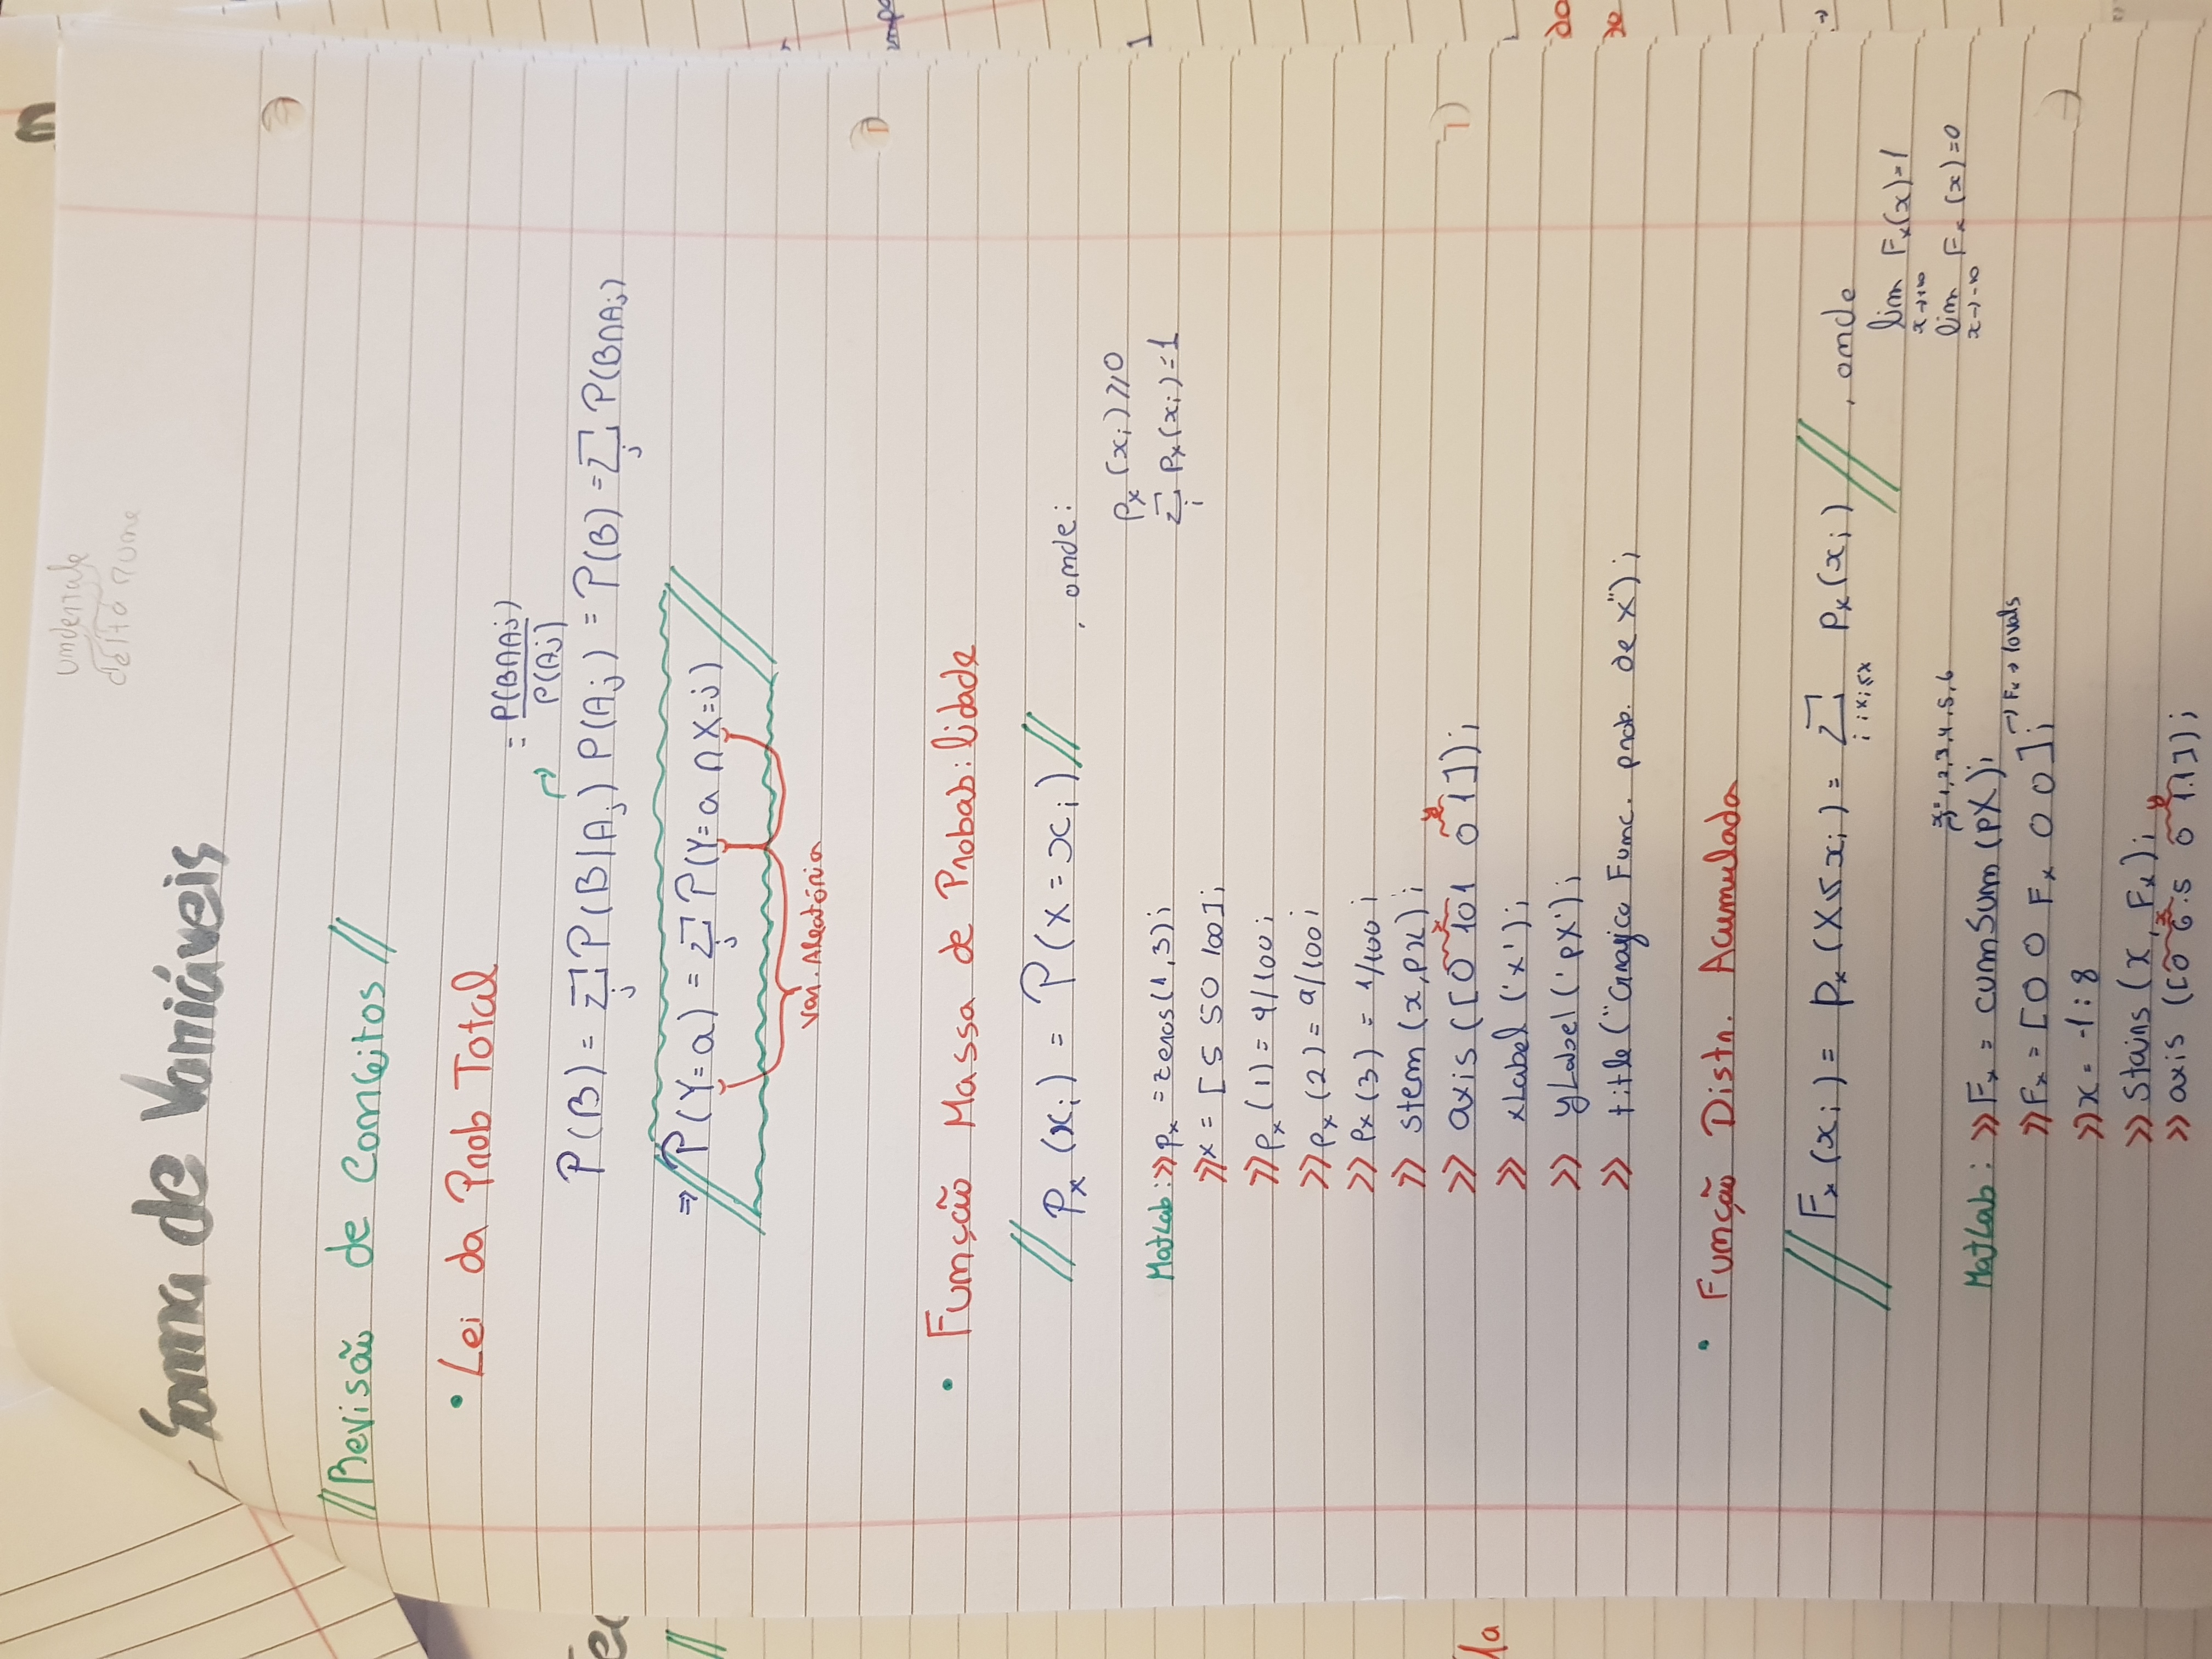 undertale
deltarune
Soma de Variáveis
//Revisão de Conceitos//
• Lei da Prob Total
= P(B∩Aj)
P(Aj)
P(B) = Σ P(B|Aj) P(Aj) = P(B) = Σ P(B∩Aj)
j j
⇒ //P(Y=a) = Σ P(Y=a ∩ X=j)//
j
Var. Aleatória
• Função Massa de Probabilidade
// px (xi) = P(X = xi) // , onde:
px (xi) ⩾ 0
MatLab: >> px = zeros(1,3);
Σ px(xi) = 1
i
>> x = [5 50 100];
>> px (1) = 9/100;
>> px (2) = 9/100;
>> px (3) = 1/100;
>> stem (x,px);
x y
>> axis ([0 101 0 1]);
>> xLabel ('x');
>> yLabel ('pX');
>> title ("Grafico Func. prob. de X");
• Função Distr. Acumulada
// Fx (xi) = px (X ≤ xi) = Σ px (xi) // , onde
i : xi ≤ x
lim Fx(x) = 1
x→+∞
x = 1,2,3,4,5,6
lim Fx (x) = 0
x→-∞
MatLab: >> Fx = cumSum (pX);
→ Fx →
>> Fx = [0 0 Fx 0 0];
>> x = -1 : 8
>> Stairs (x, Fx);
x y
>> axis ([0 6.5 0 1.1]);